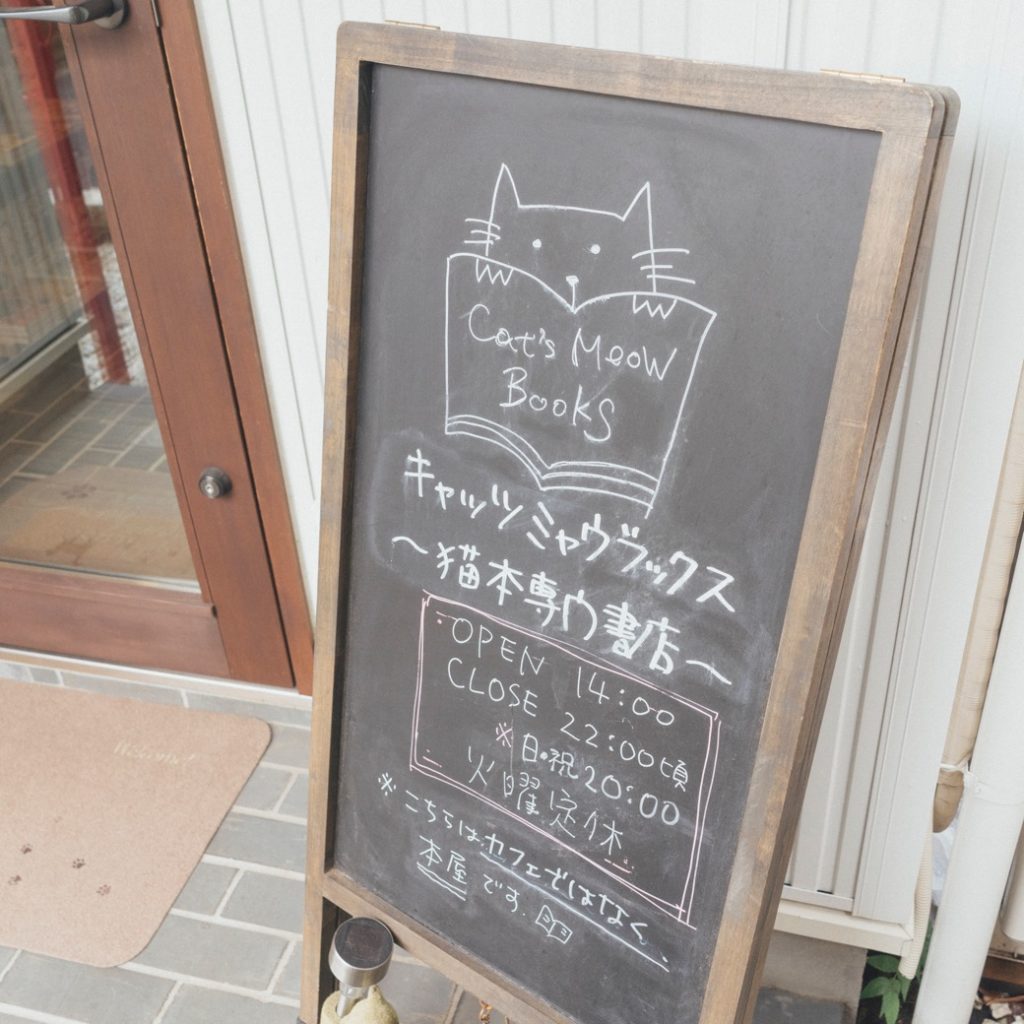 Cat's Meow
Books
キャッツミャウブックス
～猫本専門書店～
OPEN 14:00
CLOSE 22:00頃
※日・祝20:00
火曜定休
※こちらはカフェではなく、
本屋です.
Welcome!